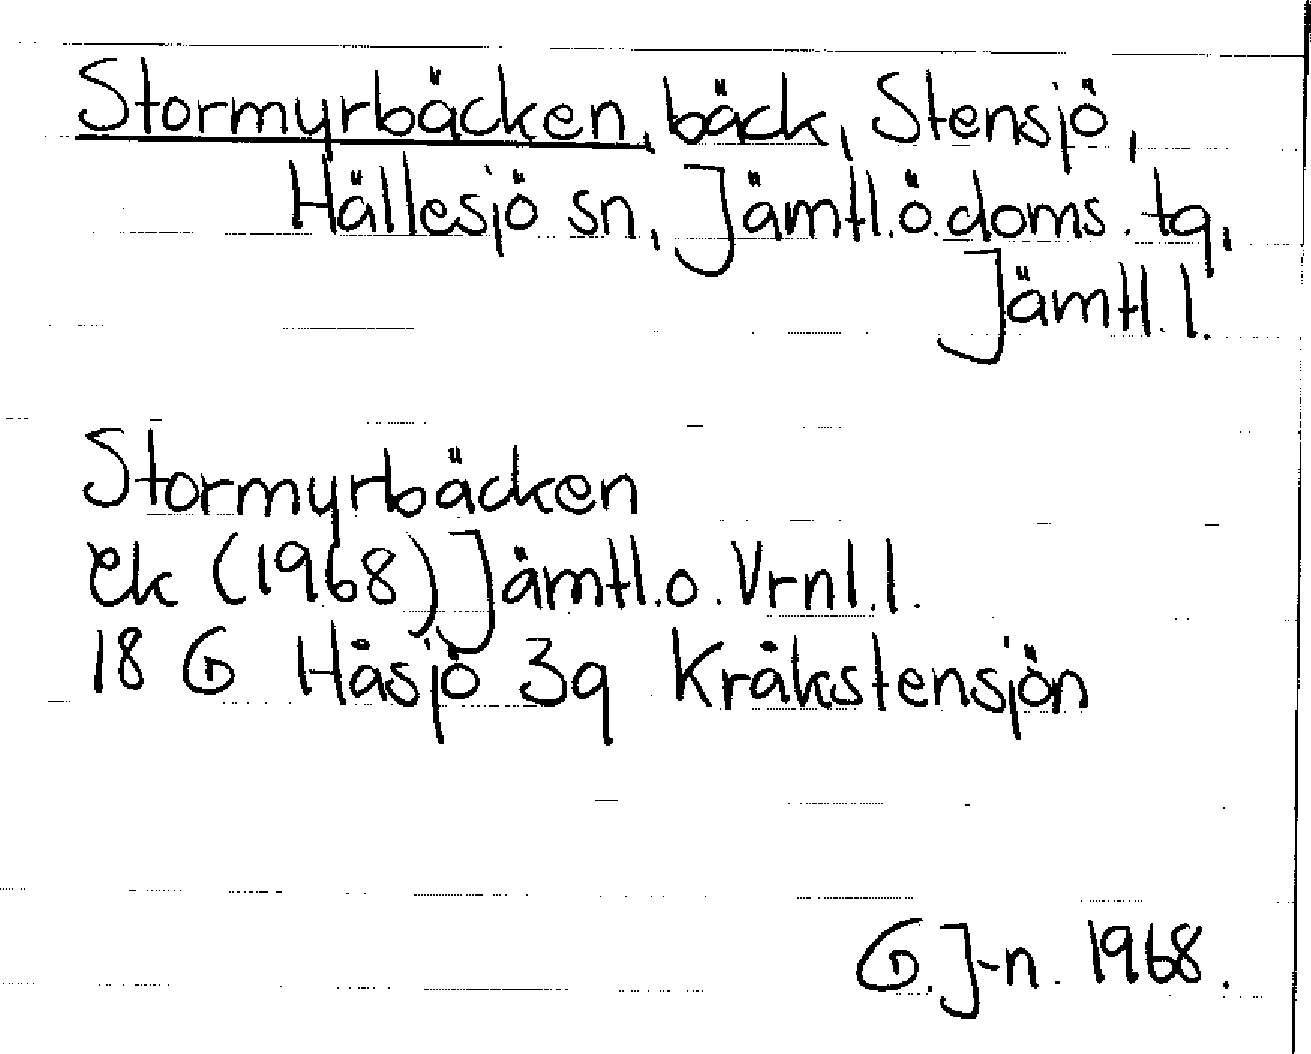 Stormyrbäcken, bäck, Stensjö,
Hällesjö sn, Jämtl.ö.doms.tg,
Jämtl.l.
Stormyrbäcken
ek (1968) Jämtl.o.Vrnl.l.
18 G Håsjö 3g Kråkstensjön
G.J-n. 1968.